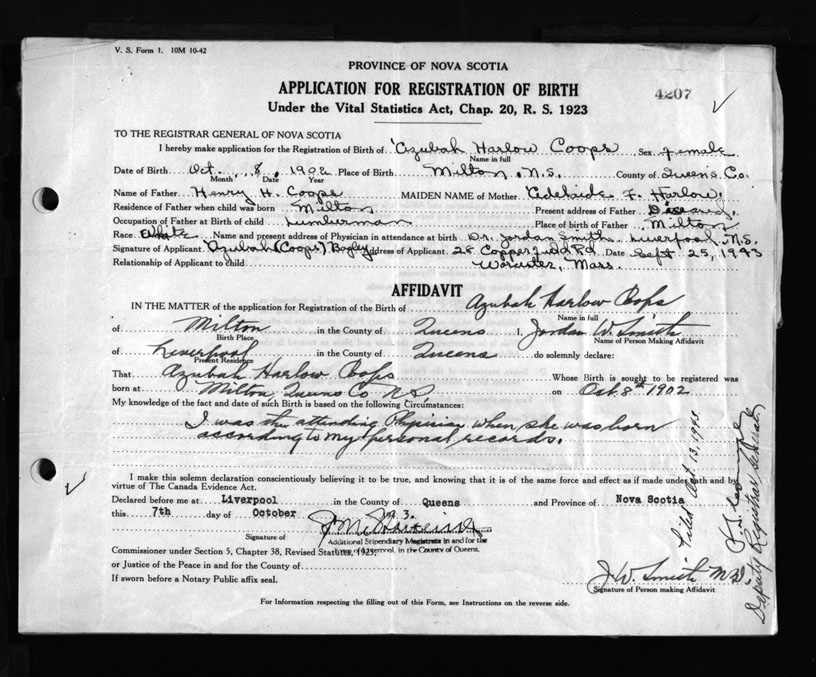 V. S. Form 1. 10M 10-42
PROVINCE OF NOVA SCOTIA
APPLICATION FOR REGISTRATION OF BIRTH
4207
Under the Vital Statistics Act, Chap. 20, R. S. 1923
TO THE REGISTRAR GENERAL OF NOVA SCOTIA
I hereby make application for the Registration of Birth of Azubah Harlow Coops Sex Female
Name in full
Date of Birth Oct. 8, 1902 Place of Birth Milton, N.S. County of Queens Co.
Month Date Year
Name of Father Henry H. Coops MAIDEN NAME of Mother Adelaide F. Harlow.
Residence of Father when child was born Milton Present address of Father Diseased.
Occupation of Father at Birth of child Lumberman Place of birth of Father Milton
Race White Name and present address of Physician in attendance at birth Dr. Jordan Smith Liverpool, N.S.
Signature of Applicant Azubah (Coops) Bagley Address of Applicant 28 Copperfield Rd. Date Sept 25, 1943
Relationship of Applicant to child Worcester, Mass.
AFFIDAVIT
IN THE MATTER of the application for Registration of the Birth of Azubah Harlow Coops
Name in full
of Milton in the County of Queens I, Jordan W. Smith
Birth Place Name of Person Making Affidavit
of Liverpool in the County of Queens do solemnly declare:
Present Residence
That Azubah Harlow Coops Whose Birth is sought to be registered was
born at Milton, Queens Co N.S. on Oct. 8th 1902
My knowledge of the fact and date of such Birth is based on the following Circumstances:
I was the attending Physician when she was born
according to my personal records.
I make this solemn declaration conscientiously believing it to be true, and knowing that it is of the same force and effect as if made under oath and by
virtue of The Canada Evidence Act.
Declared before me at Liverpool in the County of Queens and Province of Nova Scotia
this 7th day of October 3.
Signature of
Additional Stipendiary Magistrate in and for the
Commissioner under Section 5, Chapter 38, Revised Statutes, 1923. of Liverpool, in the County of Queens.
or Justice of the Peace in and for the County of
If sworn before a Notary Public affix seal.
J. W. Smith M.D.
Signature of Person making Affidavit
For Information respecting the filling out of this Form, see Instructions on the reverse side.
Filed Oct 13, 
Deputy Registrar General